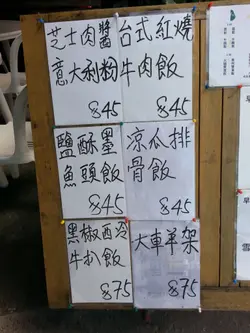 芝士肉醬
意大利粉
$45
台式紅燒
牛肉飯
$45
鹽酥墨
魚頭飯
$45
凉瓜排
骨飯
$45
黑椒西冷
牛扒飯
$75
大車羊架
$75